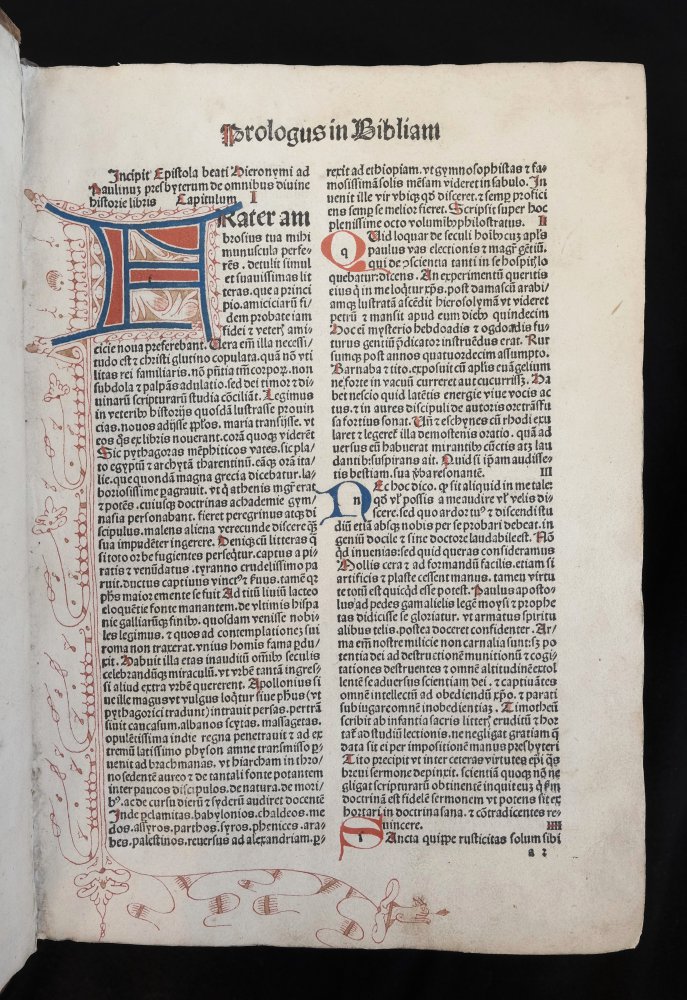 Prologus in Bibliam
Incipit Epistola beati Hieronymi ad
Paulinuz presbyterum de omnibus diuine
historie libris Capitulum I
FRater am
brosius tua mihi
munuscula perfe-
rēs. detulit simul
et suauissimas lit
teras. que a princi
pio. amiciciarū fi/
dem probate iam
fidei ⁊ veterꝭ ami-
cicie noua preferebant. Uera em̄ illa necessi/
tudo est ⁊ christi glutino copulata. quā nō vti
litas rei familiaris. nō pn̄tia tm̄ corpoꝝ. non
subdola ⁊ palpās adulatio. sed dei timor ⁊ di/
uinarū scripturarū studia cōciliāt. Legimus
in veteribꝰ historijs quosdā lustrasse prouin
cias. nouos adijsse pp̄los. maria transijsse. vt
eos q̄s ex libris nouerant. corā quoqꝫ viderēt
Sic pythagoras mēphiticos vates. sic pla/
to egyptū ⁊ archytā tharentinū. eāqꝫ orā ita/
lie. que quondā magna grecia dicebatur. la/
boriosissime ꝑagrauit. vt q̄ athenis mgr̄ erat
⁊ potēs. cuiusqꝫ doctrinas achademie gym/
nasia personabant. fieret peregrinus atqꝫ di
scipulus. malens aliena verecunde discere qꝫ
sua impudēter ingerere. Deniqꝫ cū litteras q̄
si toto orbe fugientes perseq̄tur. captus a pi/
ratis ⁊ venūdatus. tyranno crudelissimo pa
ruit. ductus captiuus vinctꝰ ⁊ ẜuus. tamē qꝫ
ph̄s maior emente se fuit Ad titū liuiū lacteo
eloquētie fonte manantem. de vltimis hispa
nie galliarūqꝫ finibꝰ. quosdam venisse nobi/
les legimus. ⁊ quos ad contemplationeꝫ sui
roma non traxerat. vnius homis fama ꝑdu/
xit. Habuit illa etas inauditū om̄ibꝰ seculis
celebrandūqꝫ miraculū. vt vrbē tantā ingres/
si aliud extra vrbē quererent. Apollonius si
ue ille magus vt vulgus loq̄tur siue ph̄us (vt
pythagorici tradunt) intrauit persas. ꝑtrā
siuit caucasum. albanos scytas. massagetas.
opulētissima indie regna penetrauit ⁊ ad ex
tremū latissimo physon amne transmisso ꝑ/
uenit ad brachmanas. vt hiarcham in thro/
no sedentē aureo ⁊ de tantali fonte potantem
inter paucos discipulos. de natura. de mori/
bꝰ. ac de cursu dierū ⁊ syderū audiret docentē
Inde ꝑ elamitas. babylonios. chaldeos. me
dos. assyros. parthos. syros. phenices. ara/
bes. palestinos. reuersus ad alexandriam. ꝑ/
rexit ad ethiopiam. vt gymnosophistas ⁊ fa/
mosissimā solis mēsam videret in sabulo. In
uenit ille vir vbiqꝫ qd̄ disceret. ⁊ semꝑ profici
ens semꝑ se melior fieret. Scripsit super hoc
plenissime octo voluminibꝰ philostratus. II
QUid loquar de seculi hoībꝰ cuꝫ apl̄s
paulus vas electionis ⁊ magr̄ gētiū.
qui de ꝯscientia tanti in se hospitꝭ lo
quebatur: dicens. An experimentū queritis
eius q̄ in me loq̄tur xp̄s. post damascū arabi/
amqꝫ lustratā ascēdit hierosolymā vt videret
petrū ⁊ mansit apud eum diebꝰ quindecim
Hoc ei mysterio hebdoadis ⁊ ogdoadis fu/
turus gentiū p̄dicator instruēdus erat. Rur
sumqꝫ post annos quatuordecim assumpto.
Barnaba ⁊ tito. exposuit cū apl̄is euāgelium
ne forte in vacuū curreret aut cucurrissꝫ. Ha
bet nescio quid latētis energie viue vocis ac
tus. ⁊ in aures discipuli de autoris ore trāsfu
sa fortius sonat. Un̄ ⁊ eschynes cū rhodi exu
laret ⁊ legeret̄ illa demostenis oratio. quā ad/
uersus eū habuerat mirantibꝰ cūctis atqꝫ lau
dantibꝰ: suspirans ait. Quid si ip̄am audisse/
tis bestiam. sua ꝟba resonantē. III
NEc hoc dico. ꝙ sit aliquid in me tale:
qd̄ vel̓ possis a me audire vel̓ velis di/
scere. sed quo ardor tuꝰ ⁊ discendi stu
diū etiā absqꝫ nobis per se probari debeat. in
geniū docile ⁊ sine doctore laudabile est. Nō
qd̄ inuenias: sed quid queras consideramus
Mollis cera ⁊ ad formandū facilis. etiam si
artificis ⁊ plaste cessent manus. tamen virtu
te totū est quicqd̄ esse potest. Paulus aposto/
lus ad pedes gamalielis legē moysi ⁊ prophe
tas didicisse se gloriatur. vt armatus spiritu
alibus telis. postea doceret confidenter. Ar/
ma em̄ nostre milicie non carnalia sunt: sꝫ po
tentia dei ad destructionē munitionū ⁊ cogi/
tationes destruentes ⁊ omnē altitudinē extol
lentē se aduersus scientiam dei. ⁊ captiuātes
omnē intellectū ad obediendū xp̄o. ⁊ parati
subiugare omnē inobedientiaꝫ. Timotheū
scribit ab infantia sacris litterꝭ eruditū ⁊ hor
tat̄ ad studiū lectionis. ne negligat gratiam q̄
data sit ei per impositionē manus presbyteri
Tito precipit vt inter ceteras virtutes ep̄i q̄s
breui sermone depinxit. scientiā quoqꝫ nō ne
gligat scripturarū obtinentē inquit euꝫ q̄ ẜm
doctrinā est fidelē sermonem vt potens sit ex
hortari in doctrina sana. ⁊ cōtradicentes re/
uincere. IIII
SAncta quippe rusticitas solum sibi
a 2